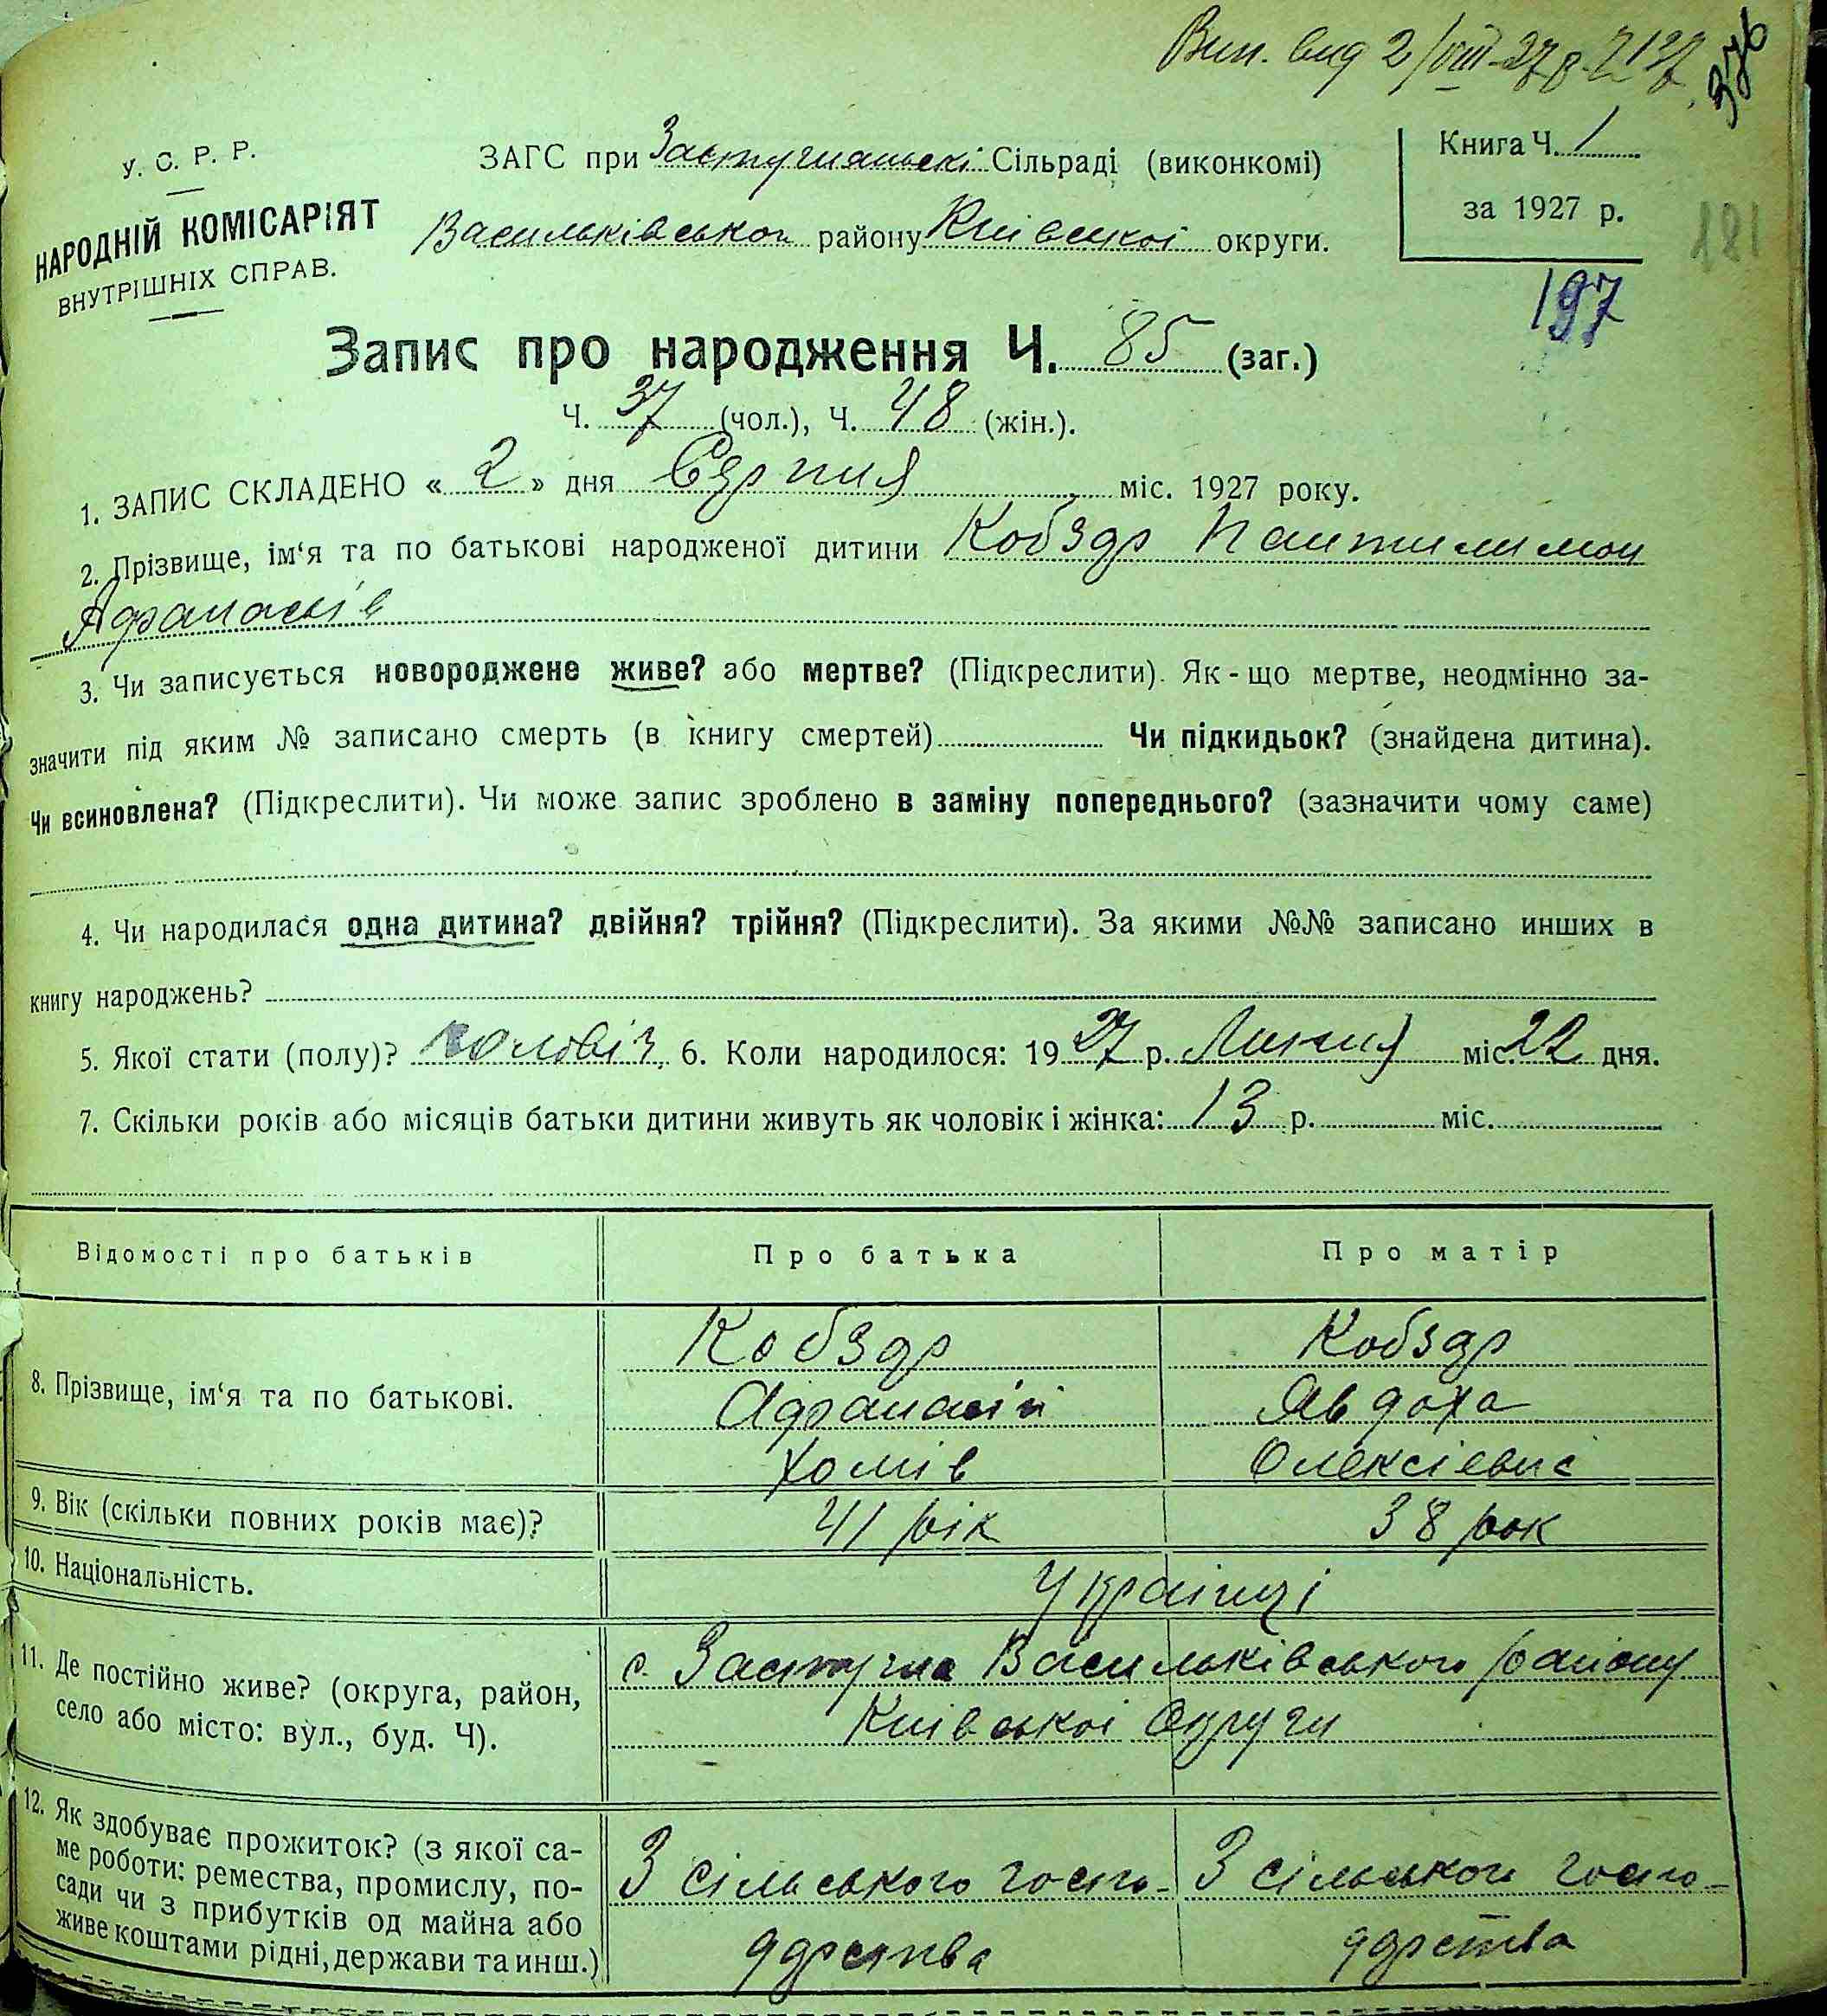 Вип. вид 2/VIII-27 р.
376
У. С. Р. Р.
НАРОДНІЙ КОМІСАРІЯТ
ВНУТРІШНІХ СПРАВ.
ЗАГС при Застугнянські Сільраді (виконкомі)
Васильківського району Київської округи.
Книга Ч. 1
за 1927 р.
181
197
Запис про народження Ч. 85 (заг.)
Ч. 37 (чол.), Ч. 48 (жін.).
1. ЗАПИС СКЛАДЕНО « 2 » дня Серпня міс. 1927 року.
2. Прізвище, ім‘я та по батькові народженої дитини Кобзар Пантилимон
Афанасіїв
3. Чи записується новороджене живе? або мертве? (Підкреслити). Як-що мертве, неодмінно за-
значити під яким № записано смерть (в книгу смертей) Чи підкидьок? (знайдена дитина).
Чи всиновлена? (Підкреслити). Чи може запис зроблено в заміну попереднього? (зазначити чому саме)
4. Чи народилася одна дитина? двійня? трійня? (Підкреслити). За якими №№ записано инших в
книгу народжень?
5. Якої стати (полу)? чоловіч. 6. Коли народилося: 1927 р. Липня міс. 22 дня.
7. Скільки років або місяців батьки дитини живуть як чоловік і жінка: 13 р. міс.
Відомості про батьків Про батька Про матір
8. Прізвище, ім‘я та по батькові.
Кобзар Кобзар
Афанасій Явдоха
Хомів Олексієвна
9. Вік (скільки повних років має)? 41 рік 38 рок
10. Національність. Українці
11. Де постійно живе? (округа, район,
село або місто: вул., буд. Ч).
с. Застугна Васильківського району
Київської Округи
12. Як здобуває прожиток? (з якої са-
ме роботи: ремества, промислу, по-
сади чи з прибутків од майна або
живе коштами рідні, держави та инш.)
З сільського госпо- З сільського госпо-
дарства дарства